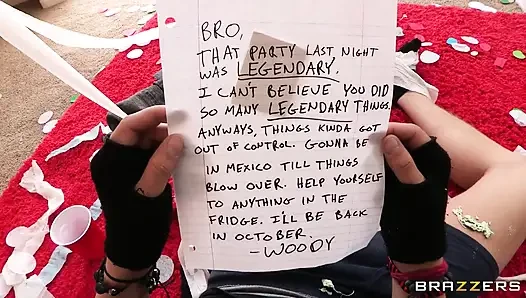 BRO,
THAT PARTY LAST NIGHT
WAS LEGENDARY.
I CAN'T BELIEVE YOU DID
SO MANY LEGENDARY THINGS.
ANYWAYS, THINGS KINDA GOT
OUT OF CONTROL. GONNA BE
IN MEXICO TILL THINGS
BLOW OVER. HELP YOURSELF
TO ANYTHING IN THE
FRIDGE. I'LL BE BACK
IN OCTOBER.
-WOODY
BRAZZERS